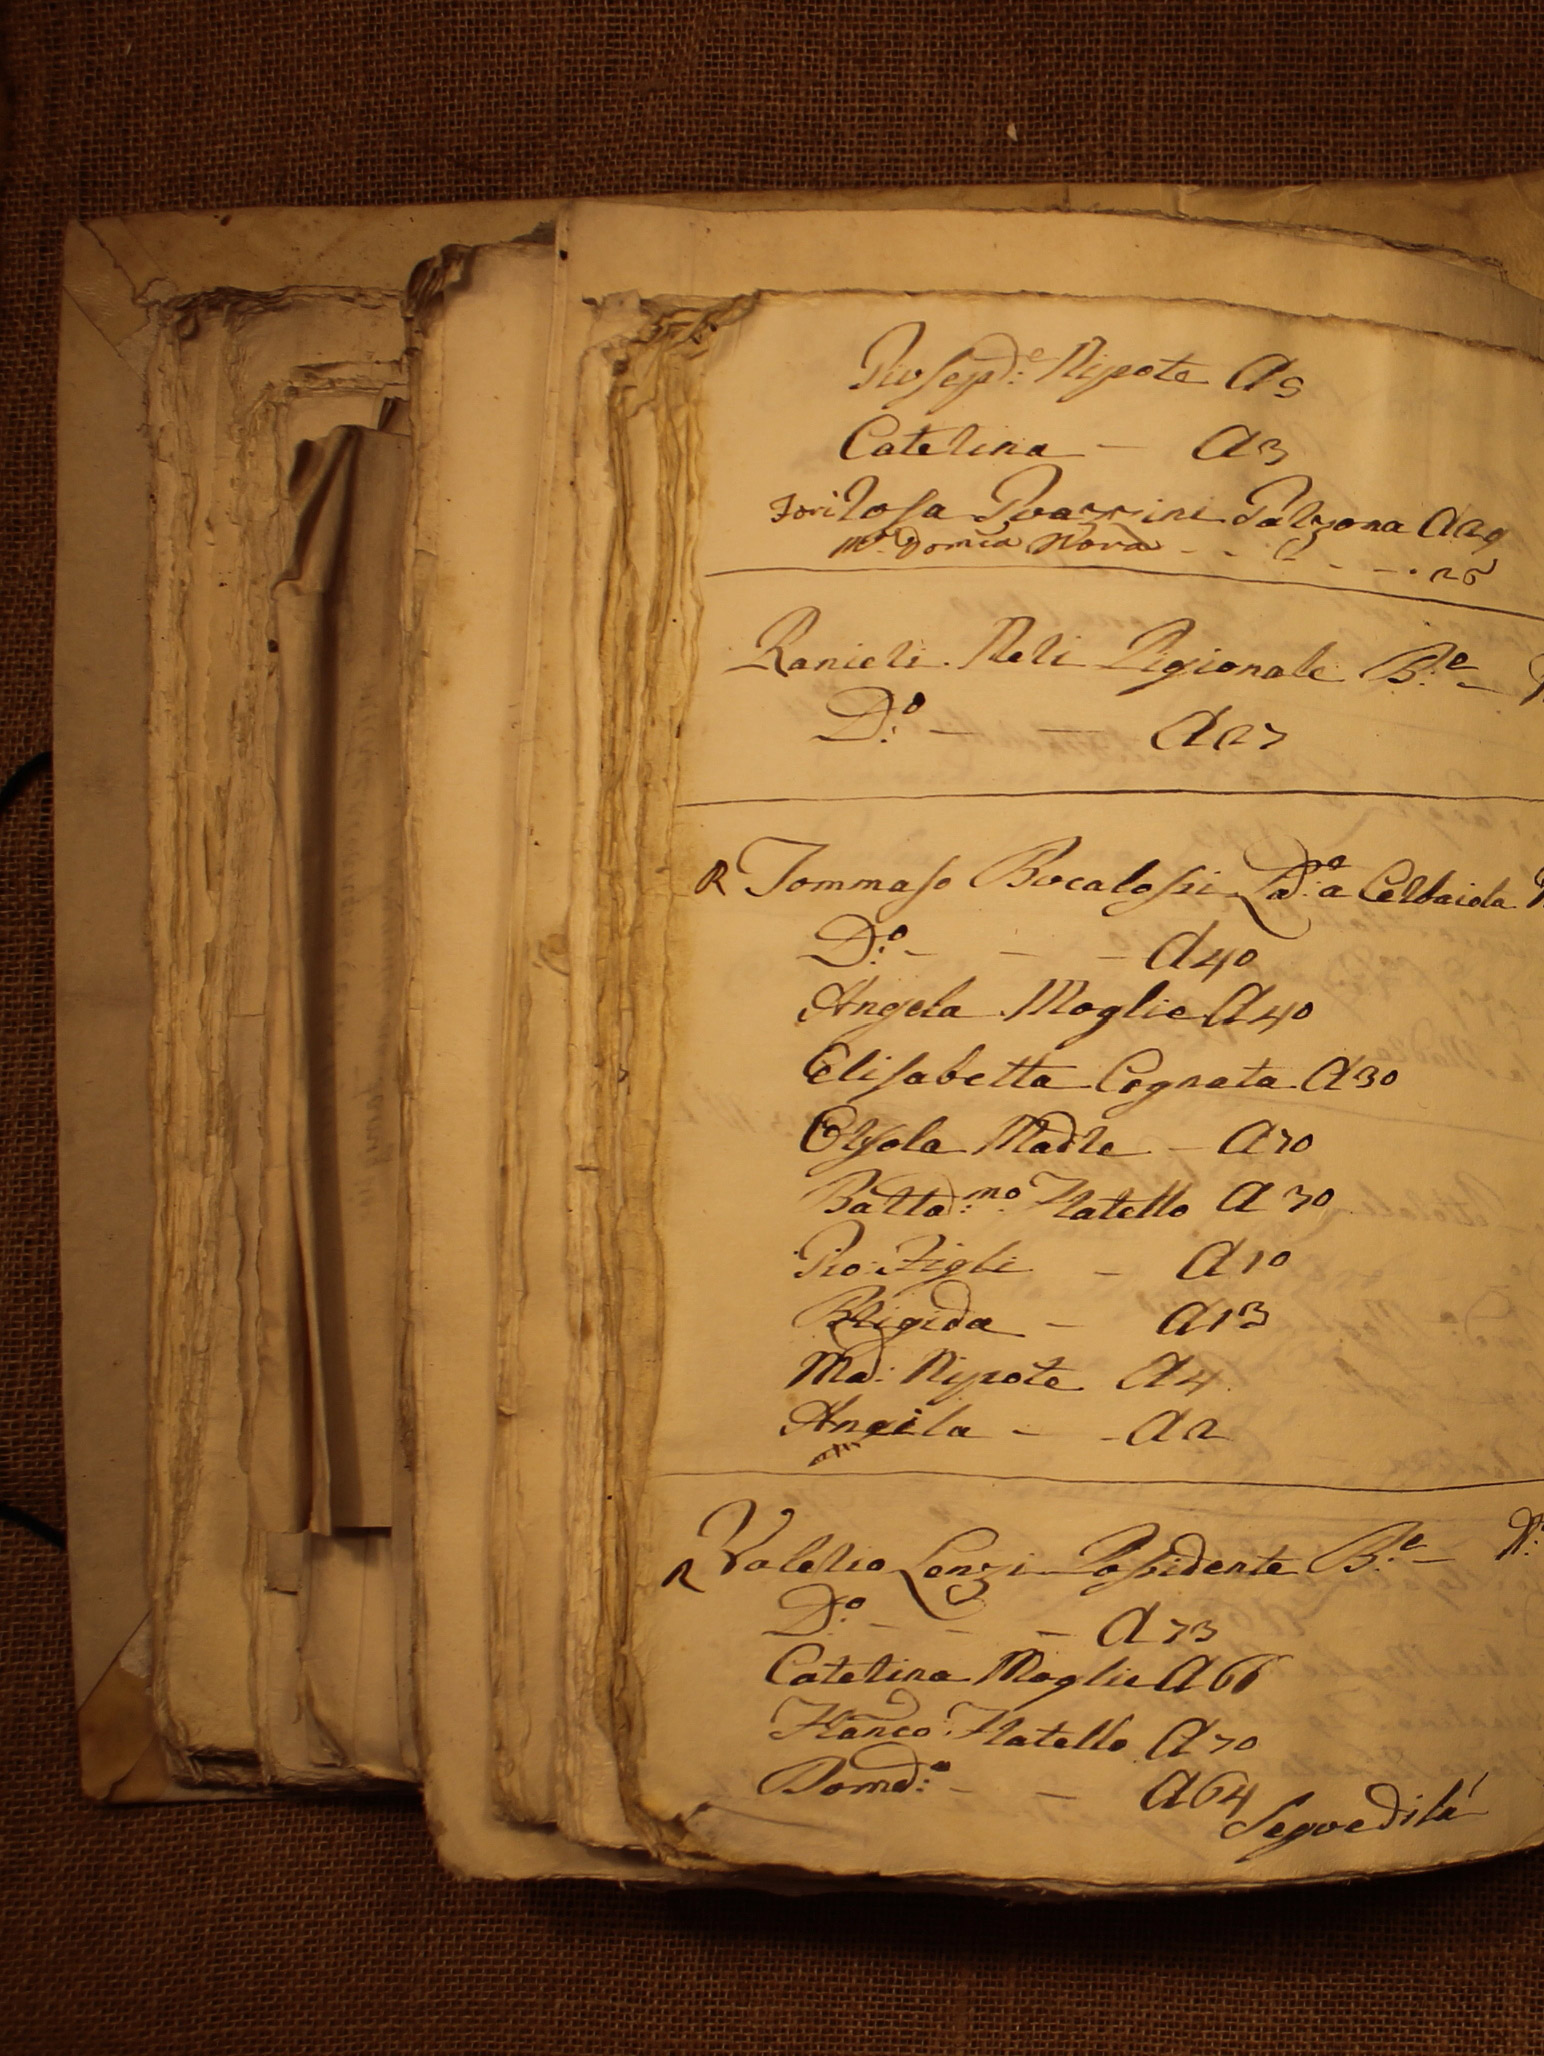 Giusep:e Nipote A 9
Caterina — A 3
fori Rosa Guazzini Garzona A 29
Ma Domca Nova - - - - . 26
Ranieri Neri Pigionale B:e
D:o — — A 27
R Tommaso Bucalossi La:o a Cerbaiola
D:o - - - A 40
Angela Moglie A 40
Elisabetta Cognata A 30
Orsola Madre - A 70
Batta:no Fratello A 30
Gio: Figli - A 10
Brigida - A 13
Ma: Nipote A 4
Angila - - A 2
R Valerio Lenzi Possidente B:e — N:
D:o - - - A 73
Caterina Moglie A 66
Franco: Fratello A 70
Dom:a - - A 64
Segue di là